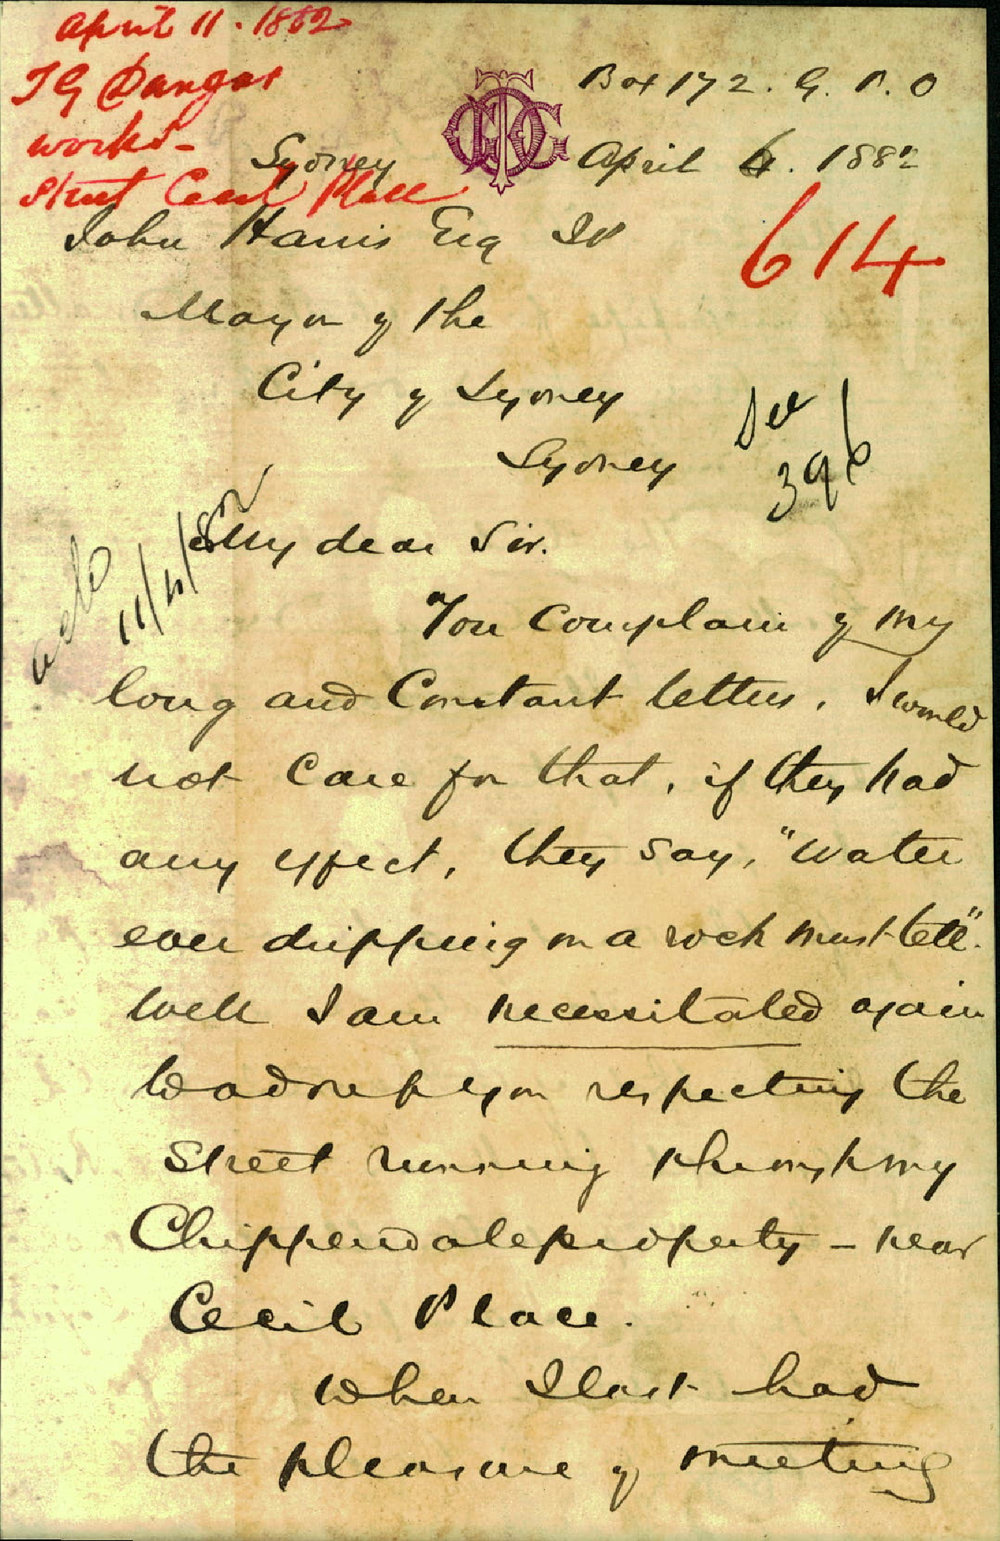 April 11. 1882
T G Dangar
works-
Street Cecil Place
Box 172. G. P. O
Sydney
April 6. 1882
614
John Harris Esq JP
Mayor of the
City of Sydney
Sydney
See
396
ackd
11/4/82
My dear Sir.
You complain of my
long and Constant letters. I would
not Care for that, if they had
any effect, they say, "water
ever dripping on a rock must tell".
Well I am necessitated again
to address you respecting the
Street running through my
Chippendale property - near
Cecil Place.
When I last had
the pleasure of meeting